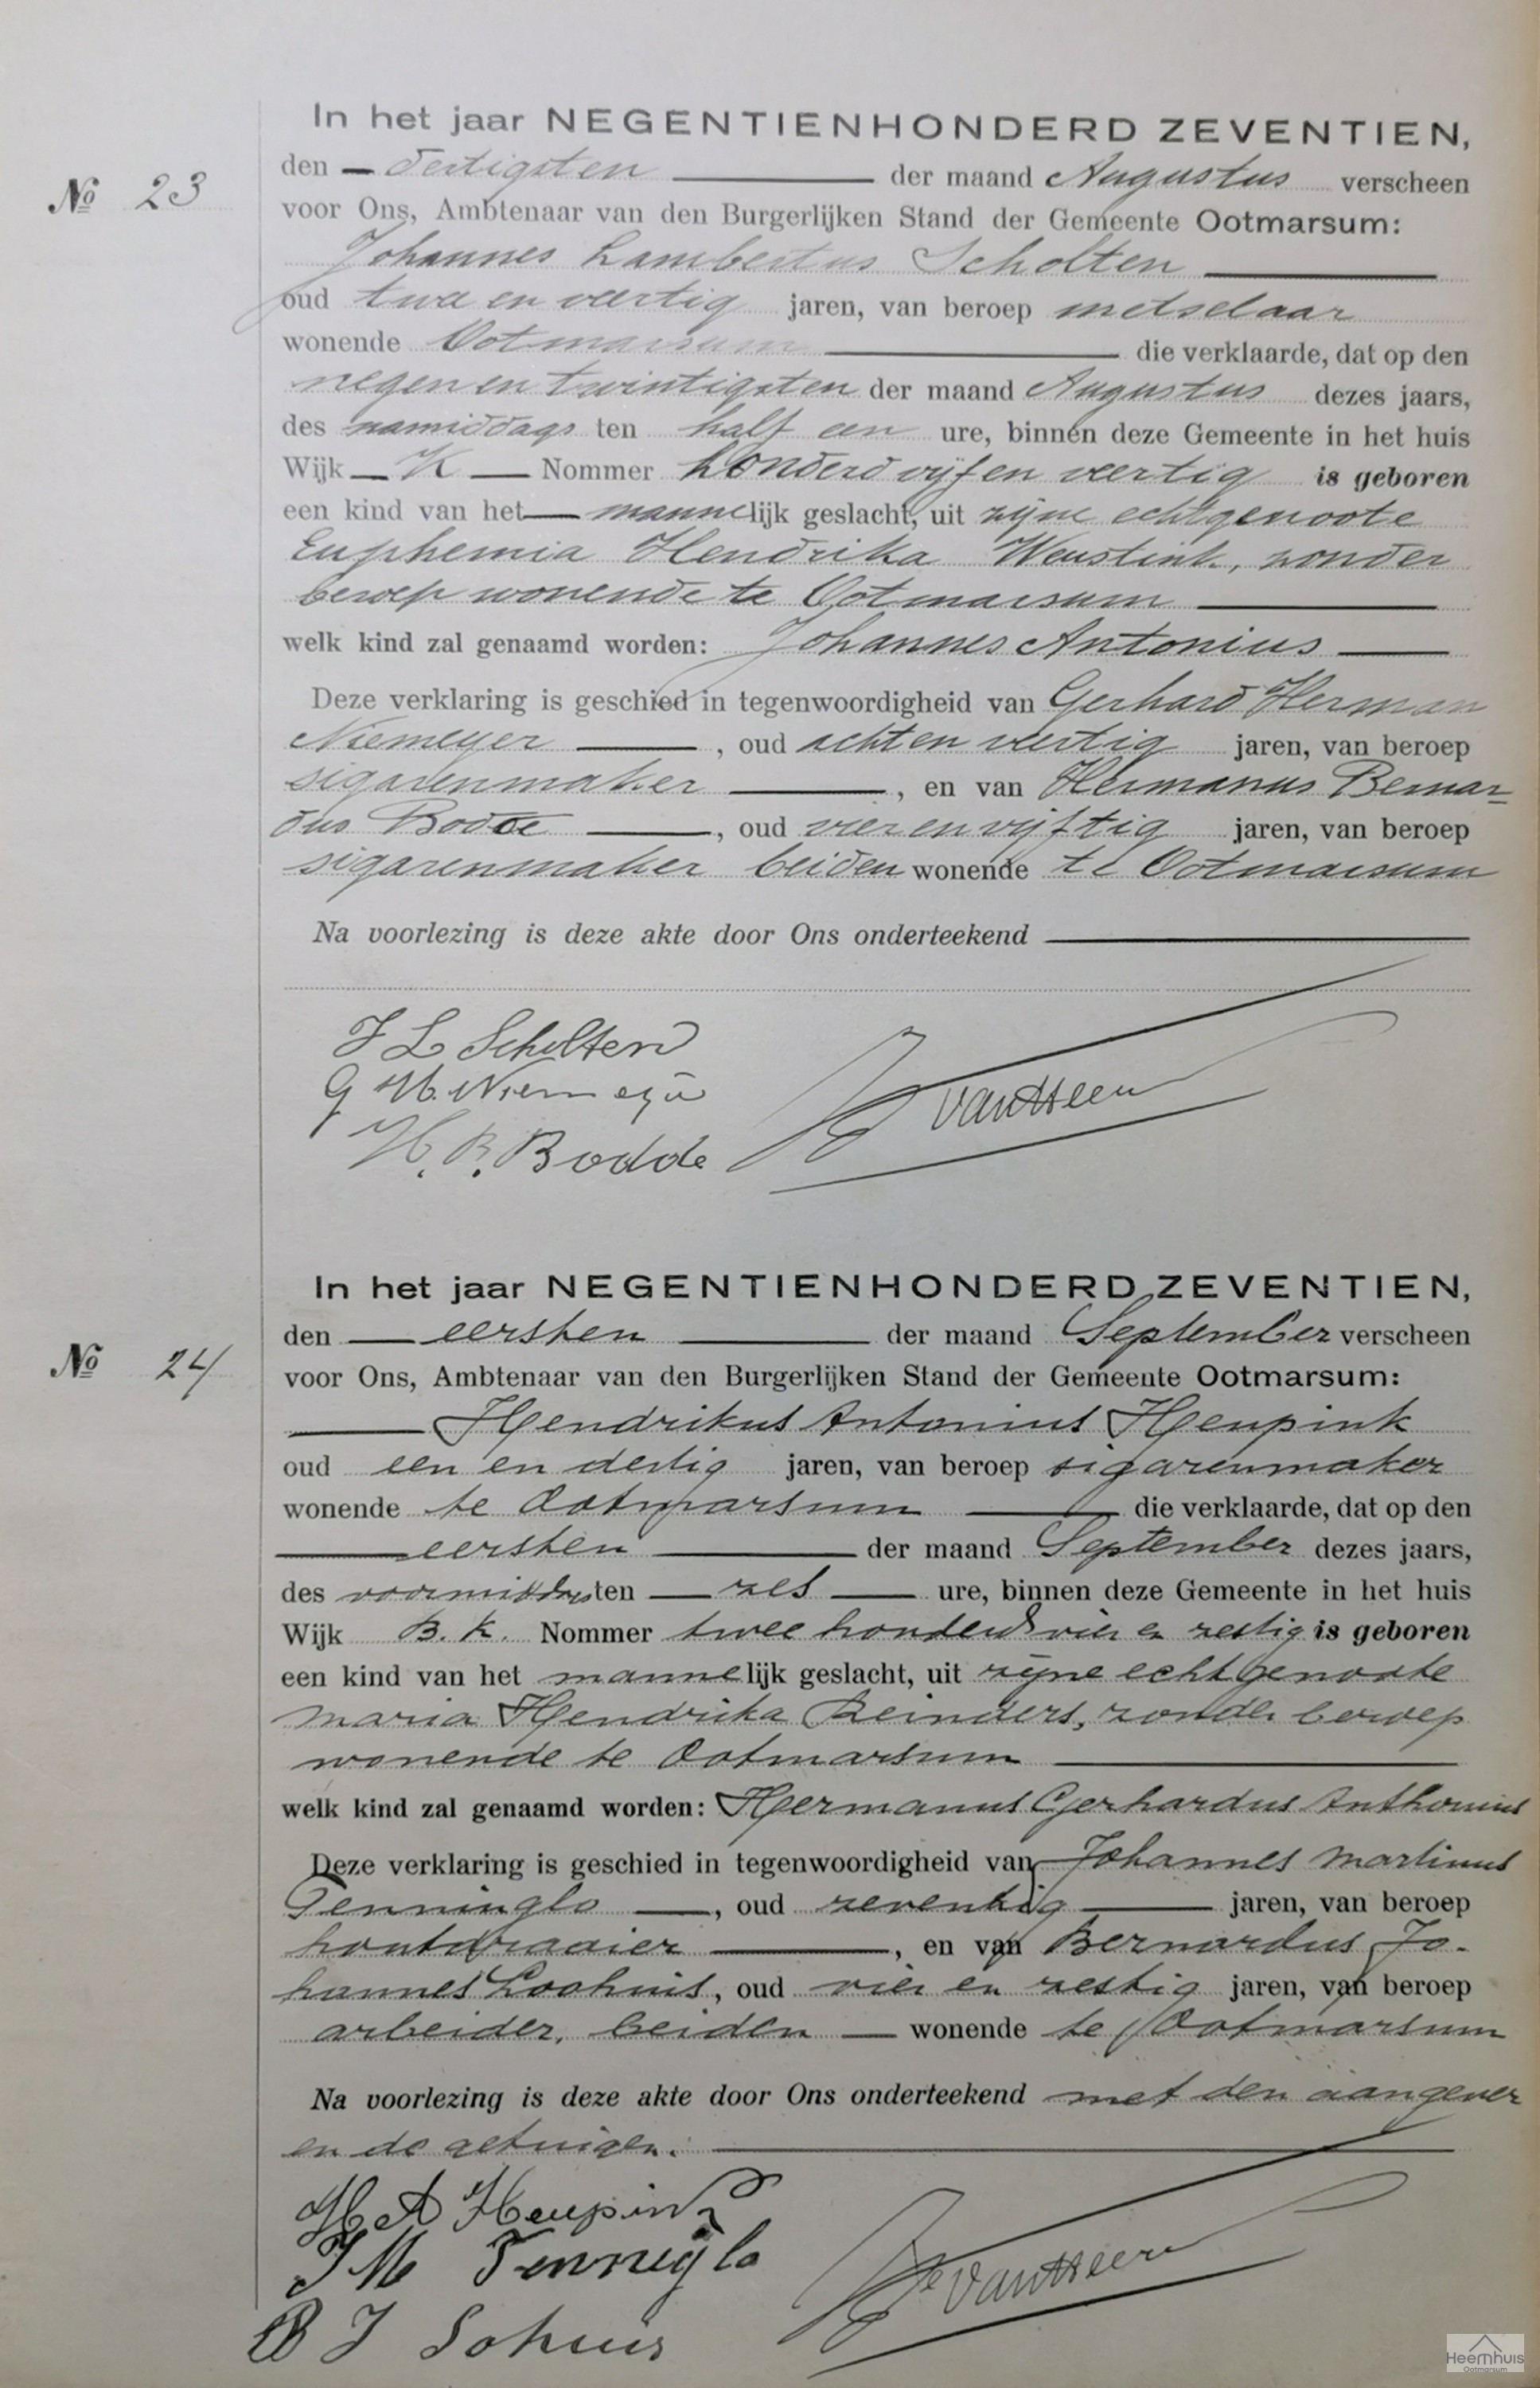 In het jaar NEGENTIENHONDERD ZEVENTIEN,
den dertigsten der maand Augustus verscheen
No 23
voor Ons, Ambtenaar van den Burgerlijken Stand der Gemeente Ootmarsum:
Johannes Lambertus Scholten
oud twee en veertig jaren, van beroep metselaar
wonende Ootmarsum die verklaarde, dat op den
negen en twintigsten der maand Augustus dezes jaars,
des namiddags ten half een ure, binnen deze Gemeente in het huis
Wijk K Nommer honderd vijf en veertig is geboren
een kind van het mannelijk geslacht, uit zijne echtgenoote
Euphemia Hendrika Weustink, zonder
beroep wonende te Ootmarsum
welk kind zal genaamd worden: Johannes Antonius
Deze verklaring is geschied in tegenwoordigheid van Gerhard Herman
Niemeyer, oud acht en veertig jaren, van beroep
sigarenmaker, en van Hermanus Bernar-
dus Bodde, oud vier en vijftig jaren, van beroep
sigarenmaker beiden wonende te Ootmarsum
Na voorlezing is deze akte door Ons onderteekend
J L Scholten
G H. Niemeyer
H. B. Bodde
van Heen
In het jaar NEGENTIENHONDERD ZEVENTIEN,
den eersten der maand September verscheen
No 24
voor Ons, Ambtenaar van den Burgerlijken Stand der Gemeente Ootmarsum:
Hendrikus Antonius Heupink
oud een en dertig jaren, van beroep sigarenmaker
wonende te Ootmarsum die verklaarde, dat op den
eersten der maand September dezes jaars,
des voormiddags ten zes ure, binnen deze Gemeente in het huis
Wijk B. K. Nommer twee honderd vier en zestig is geboren
een kind van het mannelijk geslacht, uit zijne echtgenoote
Maria Hendrika Reinders, zonder beroep
wonende te Ootmarsum
welk kind zal genaamd worden: Hermanus Gerhardus Anthonius
Deze verklaring is geschied in tegenwoordigheid van Johannes Martinus
Tenninglo, oud zeventig jaren, van beroep
houtdraaier, en van Bernardus Jo-
hannes Loohuis, oud vier en zestig jaren, van beroep
arbeider, beiden wonende te Ootmarsum
Na voorlezing is deze akte door Ons onderteekend met den aangever
en de getuigen.
H A Heupink
J M Tenniglo
B J Lohuis
van Heen
Heemhuis
Ootmarsum